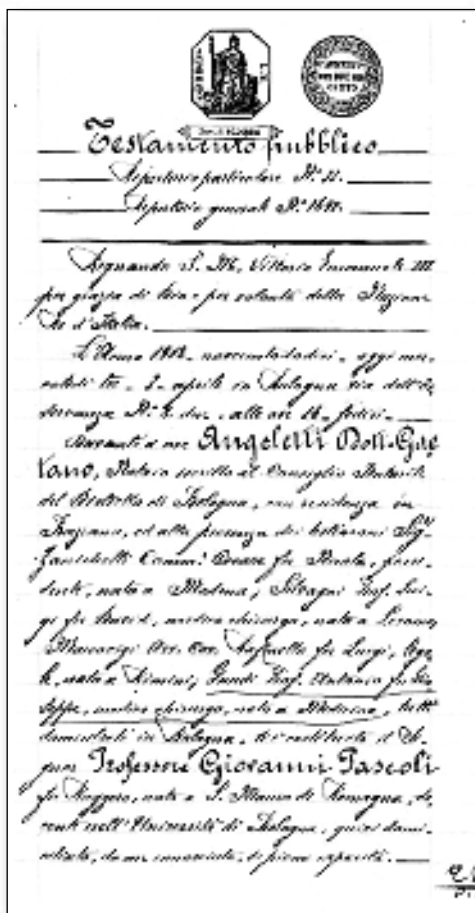 Testamento pubblico
Repertorio particolare N.° 11.
Repertorio generale N.°
Regnando S. M. Vittorio Emanuele III
per grazia di Dio e per volontà della Nazione
Re d'Italia.
L'Anno 1912 - novecentododici - oggi mer-
coledì tre - 3 - aprile in Bologna via dell'Os-
servanza N.° 2 due - alle ore 16 - sedici -
Avanti a me Angelelli Dott. Gae
tano, Notaro iscritto al Consiglio Notarile
del Distretto di Bologna, con residenza in
ed alla presenza dei testimoni Sig.ri
Zanichelli Comm. Cesare fu Nicola,
nato a Modena, Silvagni Prof. Lui-
gi fu medico chirurgo, nato a
Avv. Cav. Raffaello fu Luigi,
nato a Rimini, Gandi Prof. Antonio fu Giu
seppe, medico chirurgo, nato a tutti
domiciliati in Bologna, si è costituito il Si-
gnor Professore Giovanni Pascoli
fu Ruggero, nato a S. Mauro di Romagna, do
cente nell'Università di Bologna, quivi domi-
ciliato, da me conosciuto, di piena capacità.